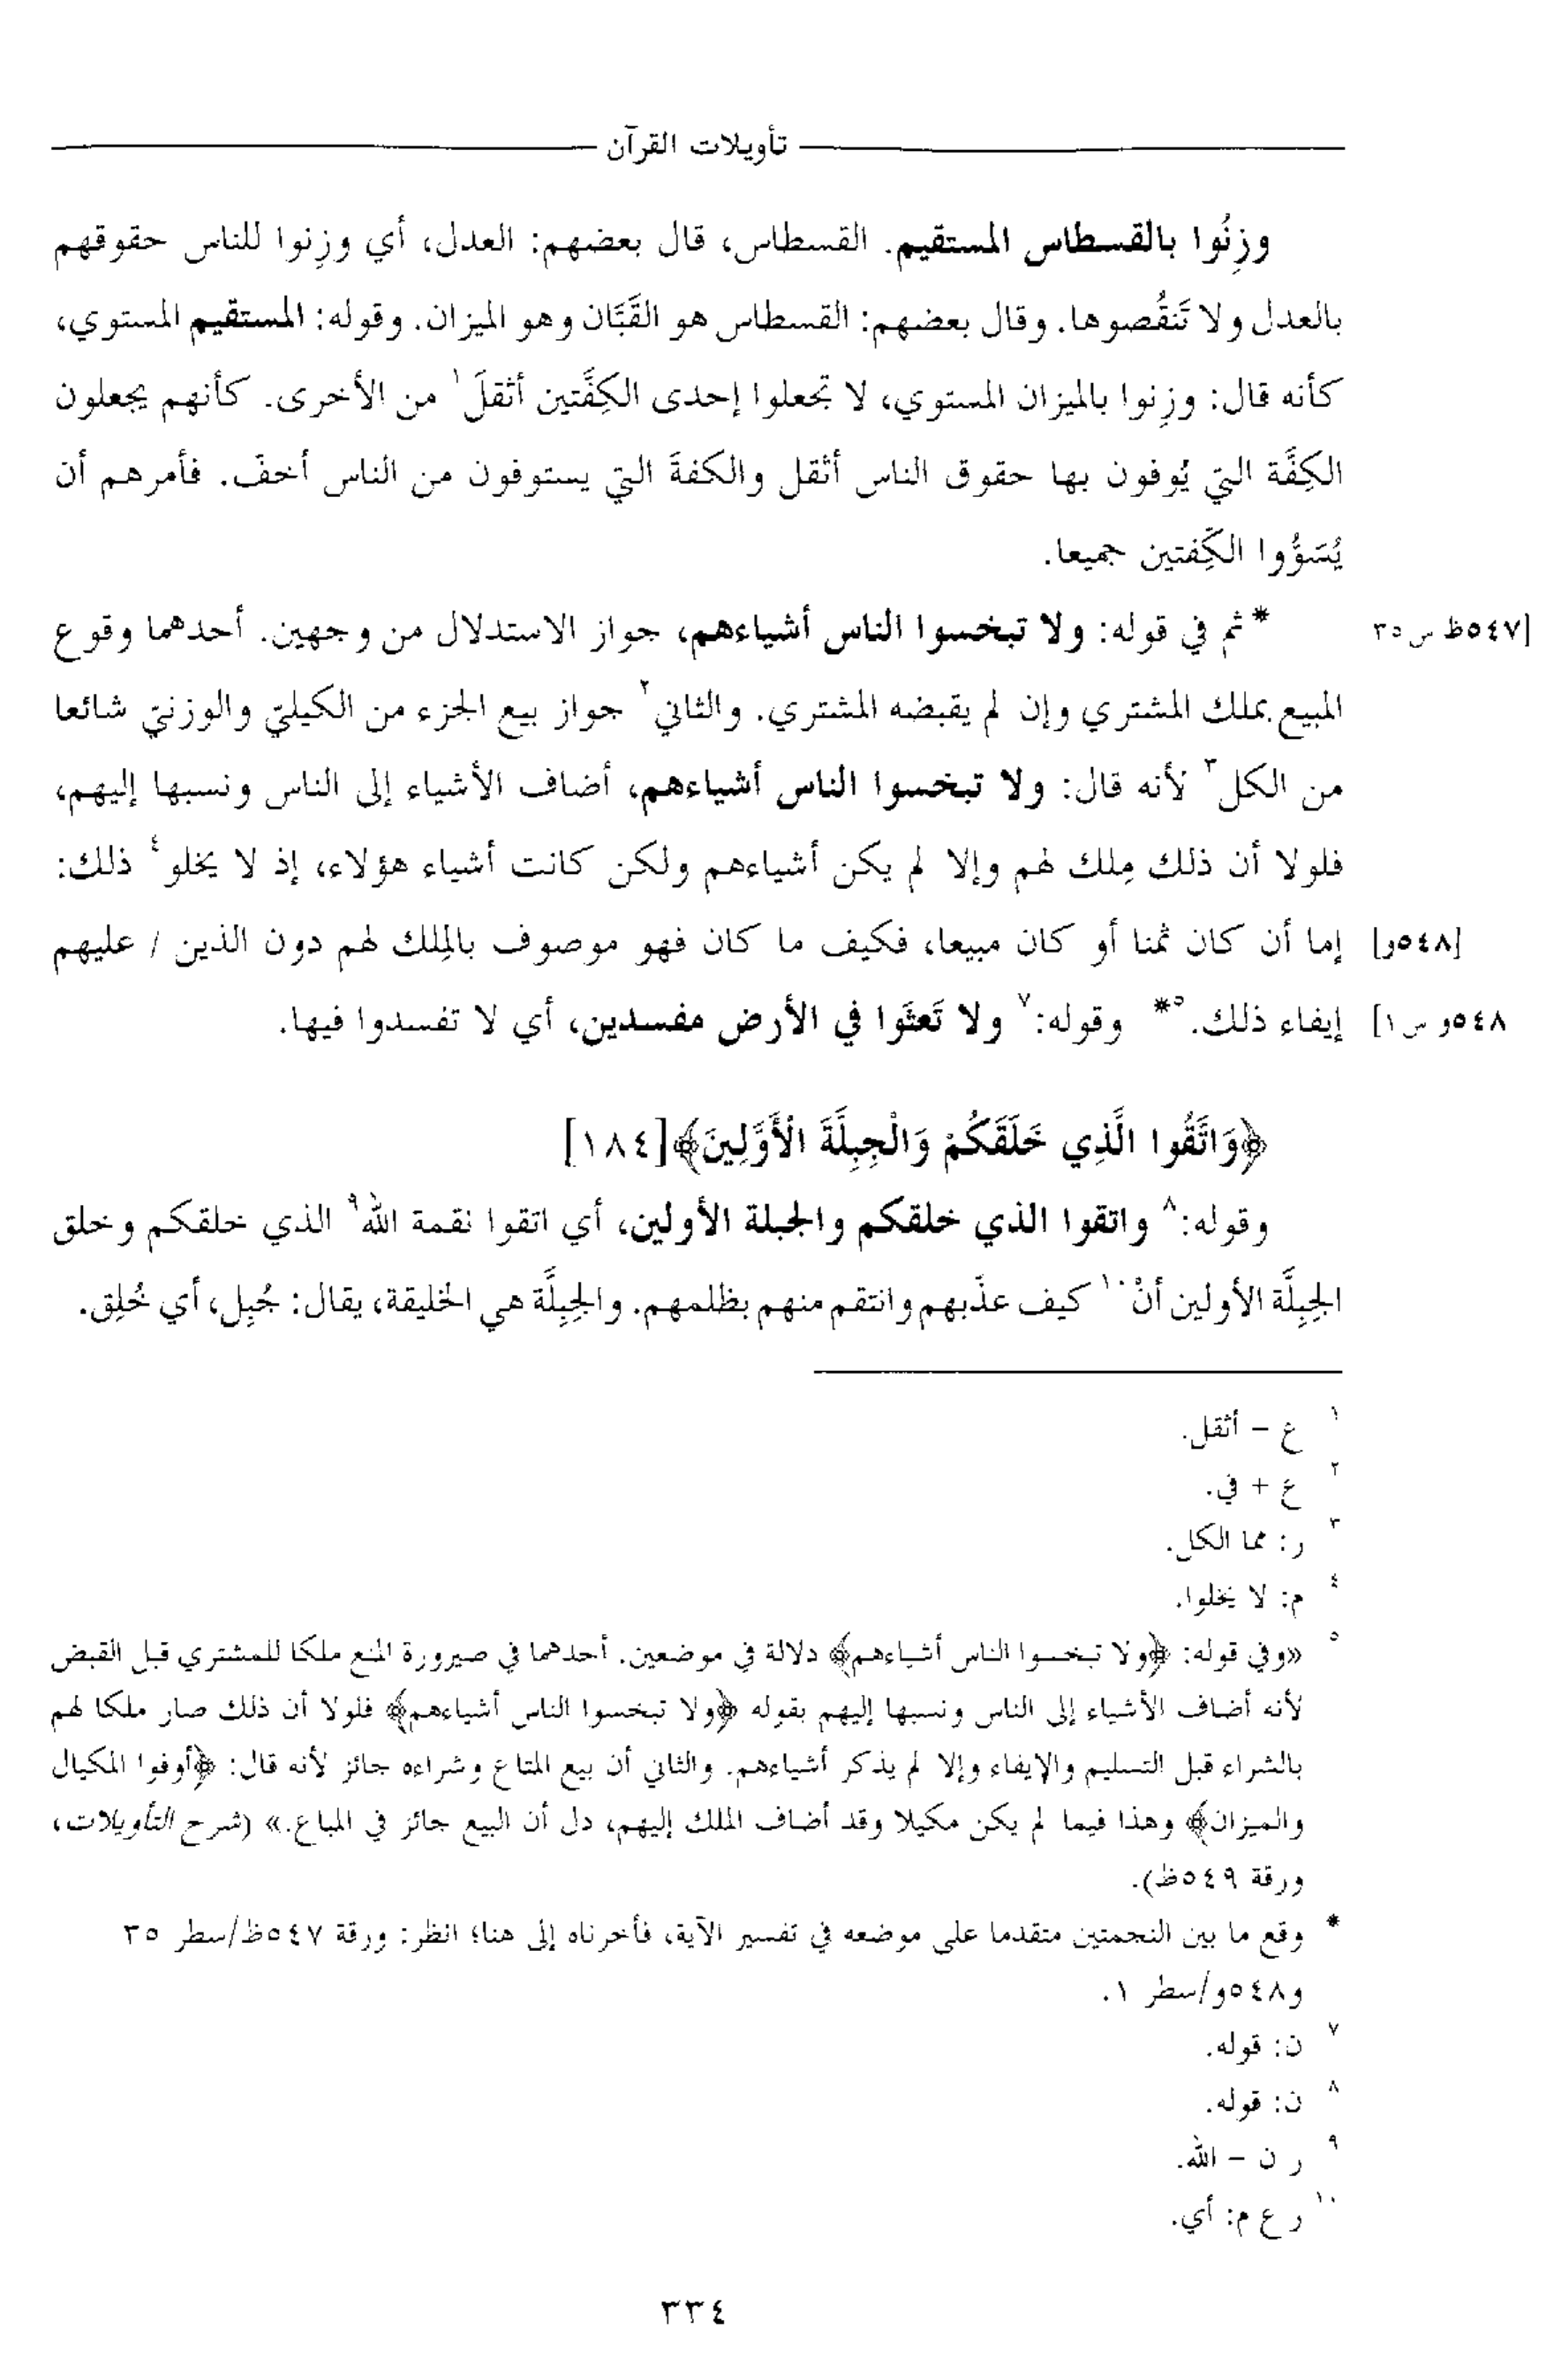 تأويلات القرآن
وزِنُوا بالقسطاس المستقيم. القسطاس، قال بعضهم: العدل، أي وزِنوا للناس حقوقهم
بالعدل ولا تَنقُصوها. وقال بعضهم: القسطاس هو القَبَّان وهو الميزان. وقوله: المستقيم المستوي،
كأنه قال: وزِنوا بالميزان المستوي، لا تجعلوا إحدى الكِفَّتين أثقلَ١ من الأخرى. كأنهم يجعلون
الكِفَّة التي يُوفون بها حقوق الناس أثقل والكفةَ التي يستوفون من الناس أخفّ. فأمرهم أن
يُسَوُّوا الكِّفتين جميعا.
[٥٤٧ظ س٣٥ *ثم في قوله: ولا تبخسوا الناس أشياءهم، جواز الاستدلال من وجهين. أحدهما وقوع
المبيع بملك المشتري وإن لم يقبضه المشتري. والثاني٢ جواز بيع الجزء من الكيليّ والوزنيّ شائعا
من الكل٣ لأنه قال: ولا تبخسوا الناس أشياءهم، أضاف الأشياء إلى الناس ونسبها إليهم،
فلولا أن ذلك مِلك لهم وإلا لم يكن أشياءهم ولكن كانت أشياء هؤلاء، إذ لا يخلو٤ ذلك:
[٥٤٨و] إما أن كان ثمنا أو كان مبيعا، فكيف ما كان فهو موصوف بالمِلك لهم دون الذين / عليهم
٥٤٨و س١] إيفاء ذلك.٥* وقوله:٧ ولا تَعثَوا في الأرض مفسدين، أي لا تفسدوا فيها.
﴿وَاتَّقُوا الَّذِي خَلَقَكُمْ وَالْجِبِلَّةَ الْأَوَّلِينَ﴾[١٨٤]
وقوله:٨ واتقوا الذي خلقكم والجبلة الأولين، أي اتقوا نقمة الله٩ الذي خلقكم وخلق
الجِبِلَّة الأولين أنْ١٠ كيف عذّبهم وانتقم منهم بظلمهم. والجِبِلَّة هي الخليقة، يقال: جُبِل، أي خُلِق.
١ ع – أثقل.
٢ ع + في.
٣ ر: مما الكل.
٤ م: لا يخلوا.
٥ «وفي قوله: ﴿ولا تبخسوا الناس أشياءهم﴾ دلالة في موضعين. أحدهما في صيرورة المنع ملكا للمشتري قبل القبض
لأنه أضاف الأشياء إلى الناس ونسبها إليهم بقوله ﴿ولا تبخسوا الناس أشياءهم﴾ فلولا أن ذلك صار ملكا لهم
بالشراء قبل التسليم والإيفاء وإلا لم يذكر أشياءهم. والثاني أن بيع المتاع وشراءه جائز لأنه قال: ﴿أوفوا المكيال
والميزان﴾ وهذا فيما لم يكن مكيلا وقد أضاف الملك إليهم، دل أن البيع جائز في المباع.» (شرح التأويلات،
ورقة ٥٤٩ظ).
* وقع ما بين النجمتين متقدما على موضعه في تفسير الآية، فأخرناه إلى هنا؛ انظر: ورقة ٥٤٧ظ/سطر ٣٥
و٥٤٨و/سطر ١.
٧ ن: قوله.
٨ ن: قوله.
٩ ر ن – الله.
١٠ ر ع م: أي.
٣٣٤